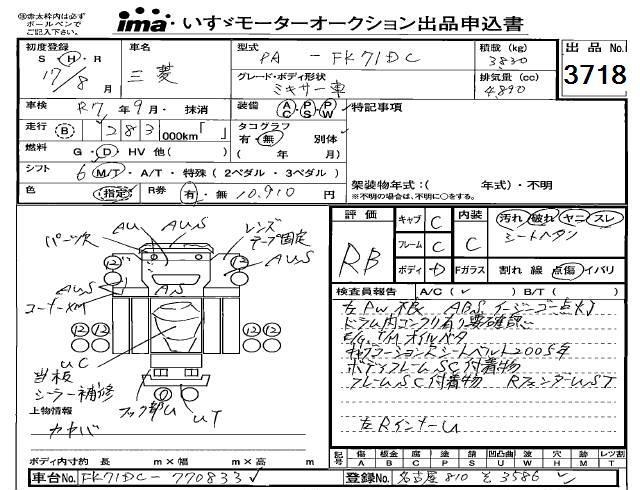 ※赤太枠内は必ず
ボールペンで
ご記入下さい。
ima いすゞモーターオークション出品申込書
初度登録 車名 型式 積載 (kg) 出品No.
S・H・R 三菱 PA - FK71DC 3830 3718
17/8月 グレード・ボディ形状 排気量 (cc)
ミキサー車 4,890
車検 R7年9月・抹消 装備 AC PS PW 特記事項
走行 B 283 000km「 」 タコグラフ
有・無 別体
燃料 G・D・HV 他( ) ( 年 月)
シフト 6 M/T・A/T・特殊 (2ペダル・3ペダル)
架装物年式:( 年式)・不明
色 (指定) R券 有・無 10,910円 ※不明の場合は、不明に○をする。
評価 キャブ C 内装 汚れ 破れ ヤニ スレ
RB フレーム C C シートヘタン
ボディ D Fガラス 割れ 線 点傷 イバリ
AU AUS レンズ
パーツ欠 テープ固定
12 12
AUS AS AUS
コーナーXM
12 12 12 12
UC
当板
シーラー補修
フック部U UT
検査員報告 A/C( ✓ ) B/T( )
左PW不良 ABSイージーゴー点灯
ドラム内コンクリ有り要確認
E/G、T/Mオイルベタ
キャブラーションドシートベルト2005年
ボディフレームSC付着物
フレームSC付着物 RフェンダーUST
左RインナーU
上物情報
カヤバ
記号 傷 板金 腐 塗 錆 凹凸曲 波 穴 跡 レツ割
A B C P S U W H M T
ボディ内寸約 長 m×幅 m×高 m
車台No. FK71DC-770833✓ 登録No. 名古屋 810 そ 3586